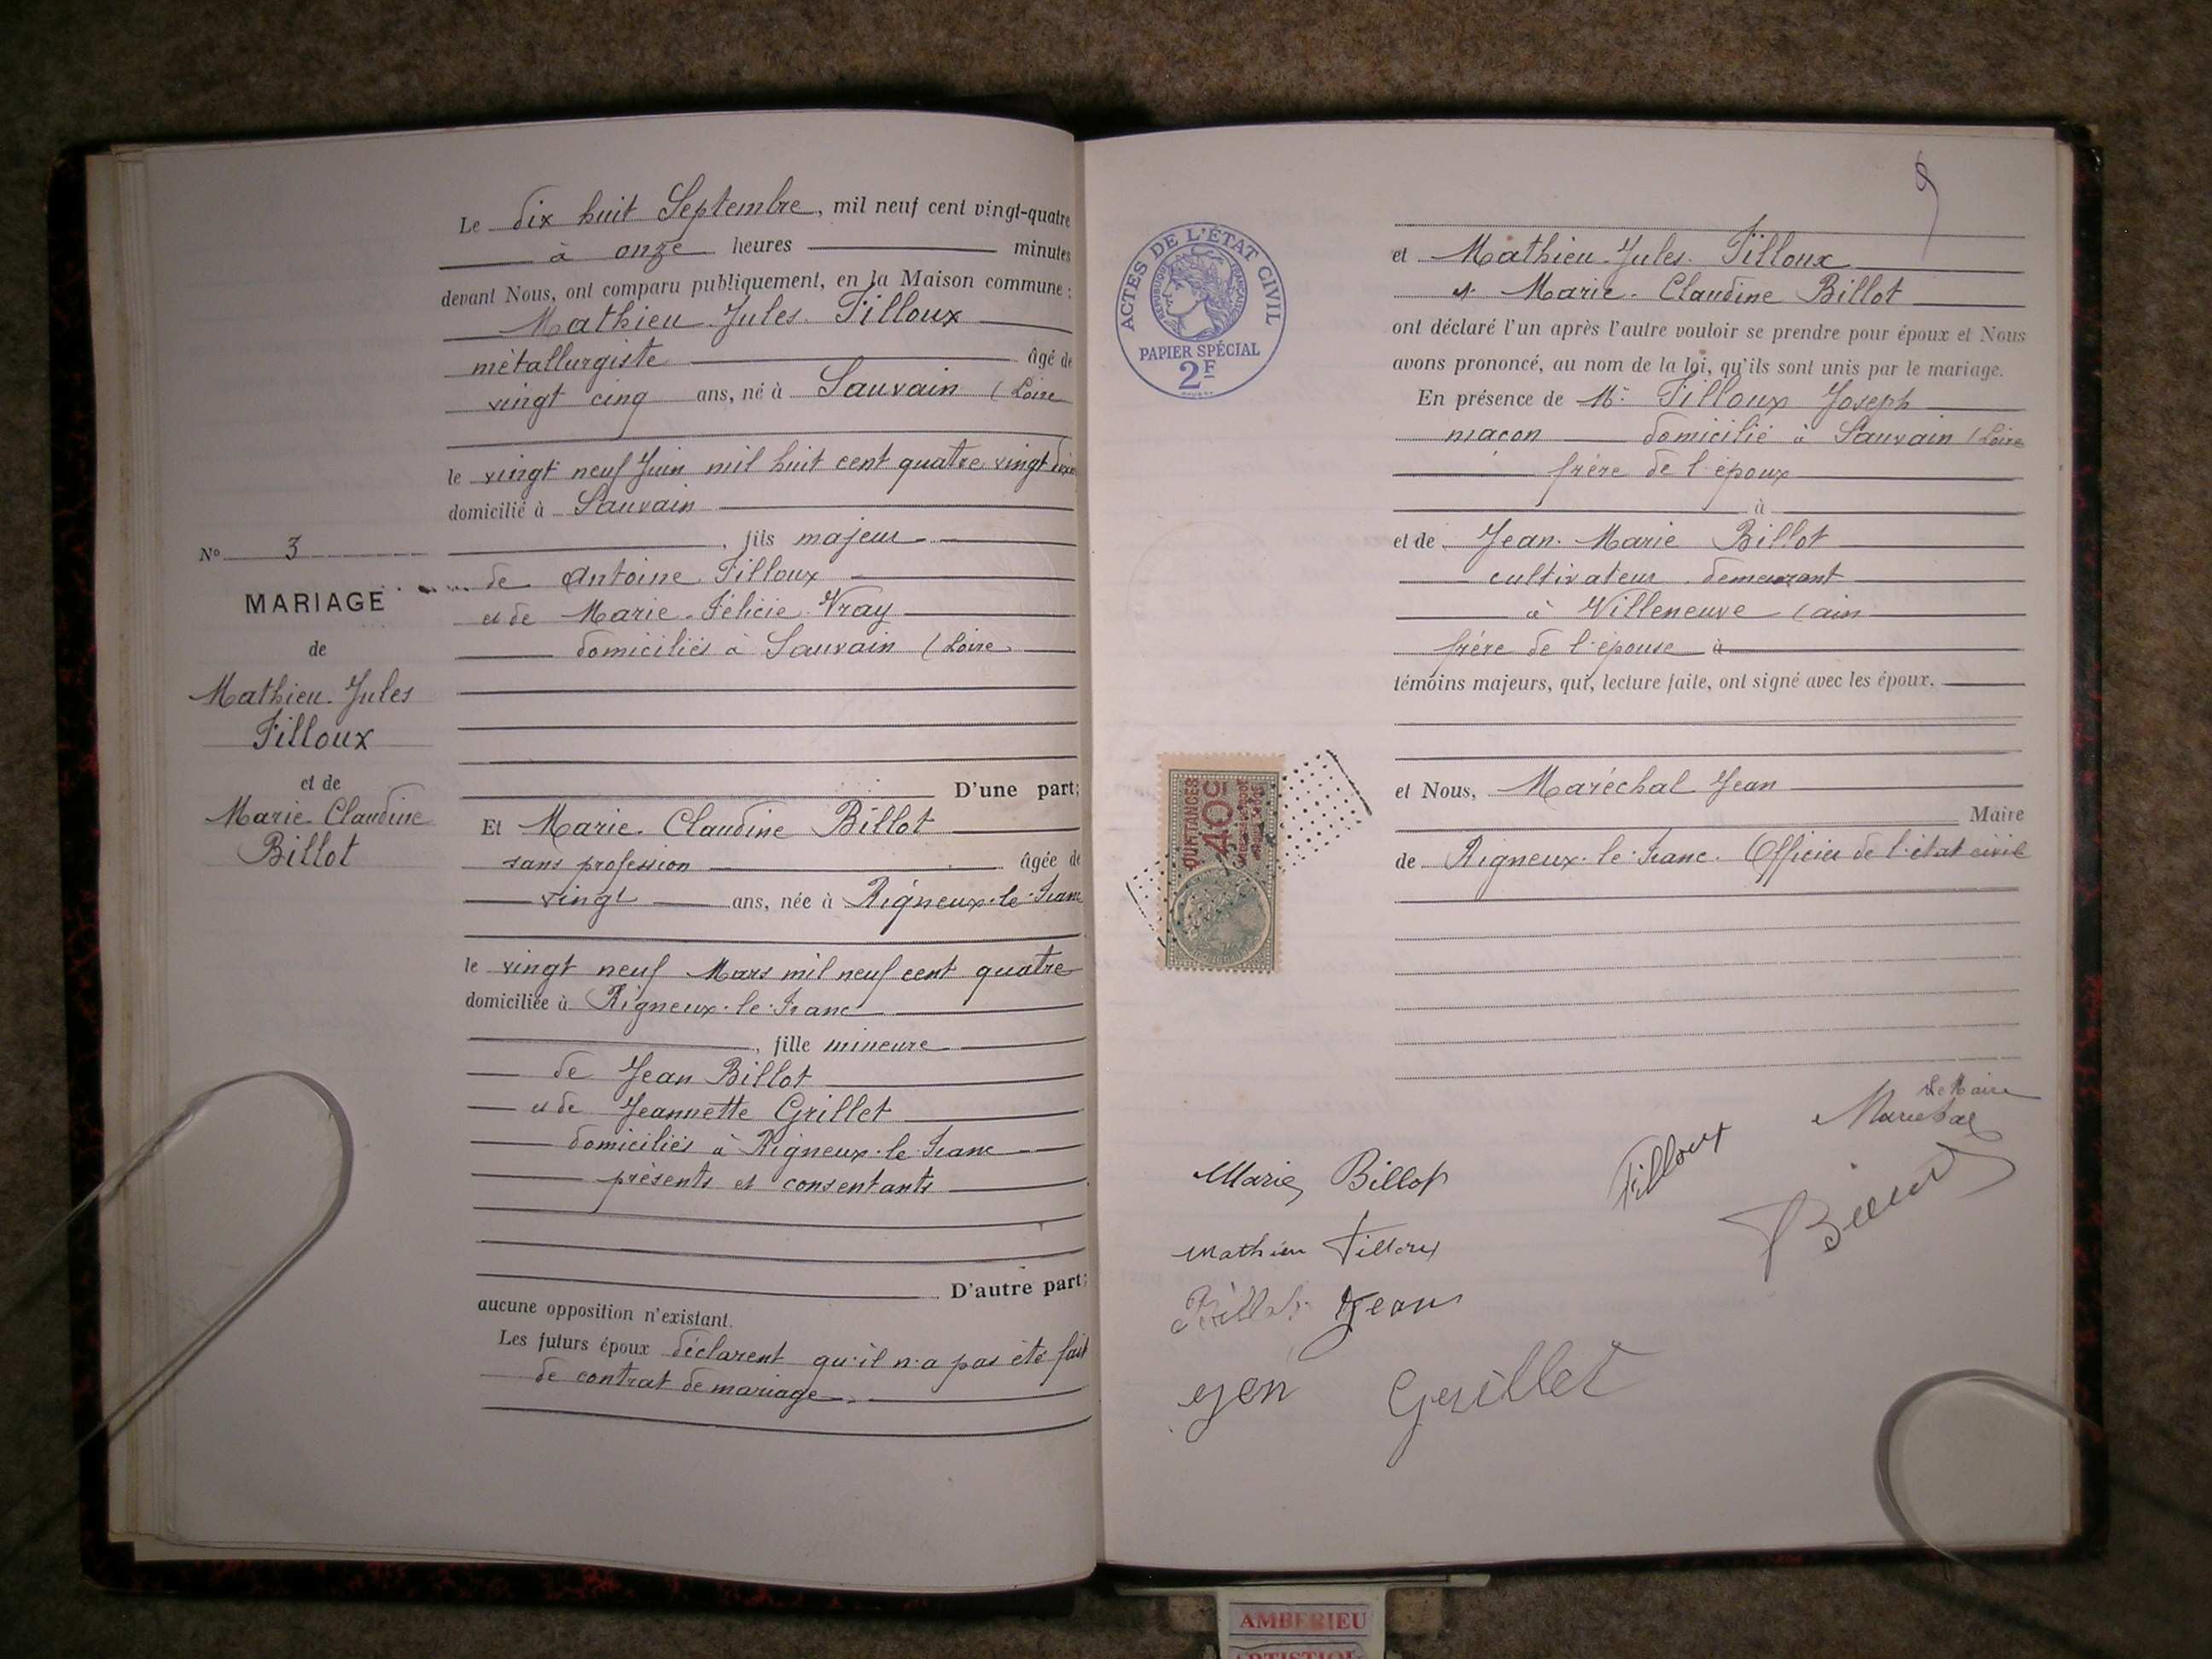 Le dix huit Septembre, mil neuf cent vingt-quatre
à onze heures minutes
devant Nous, ont comparu publiquement, en la Maison commune :
Mathieu Jules Filloux
métallurgiste âgé de
vingt cinq ans, né à Sauvain (Loire
le vingt neuf Juin mil huit cent quatre vingt dix
domicilié à Sauvain
, fils majeur
de Antoine Filloux
et de Marie Félicie Vray
domiciliés à Sauvain (Loire
N° 3
MARIAGE
de
Mathieu Jules
Filloux
et de
Marie Claudine
Billot
D'une part;
Et Marie Claudine Billot
sans profession âgée de
vingt ans, née à Rigneux-le-Franc
le vingt neuf Mars mil neuf cent quatre
domiciliée à Rigneux-le-Franc
, fille mineure
de Jean Billot
et de Jeannette Grillet
domiciliés à Rigneux-le-Franc
présents et consentants
D'autre part;
aucune opposition n'existant.
Les futurs époux déclarent qu'il n'a pas été fait
de contrat de mariage
ACTES DE L'ÉTAT CIVIL
RÉPUBLIQUE FRANÇAISE
PAPIER SPÉCIAL
2F
et Mathieu Jules Filloux
et Marie Claudine Billot
ont déclaré l'un après l'autre vouloir se prendre pour époux et Nous
avons prononcé, au nom de la loi, qu'ils sont unis par le mariage.
En présence de Mr Filloux Joseph
maçon domicilié à Sauvain (Loire
frère de l'époux
à
et de Jean Marie Billot
cultivateur demeurant
à Villeneuve (ain
frère de l'épouse à
témoins majeurs, qui, lecture faite, ont signé avec les époux.
QUITTANCES
40c
et Nous, Maréchal Jean
Maire
de Rigneux-le-Franc. Officier de l'état civil
Le Maire
Marechal
Marie Billot
Filloux
Mathieu Filloux
Billot Jean
Grillet
AMBERIEU